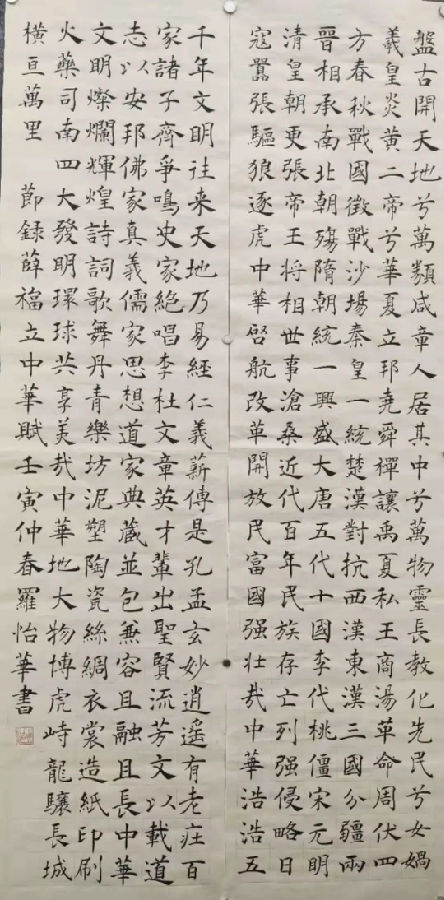 盤古開天地兮萬類咸章人居其中兮萬物靈長教化先民兮女媧
羲皇炎黄二帝兮華夏立邦堯舜禪讓禹夏私王商湯革命周伏四
方春秋戰國徵戰沙場秦皇一統楚漢對抗西漢東漢三國分疆兩
晉相承南北朝殤隋朝統一興盛大唐五代十國李代桃僵宋元明
清皇朝更張帝王將相世事滄桑近代百年民族存亡列强侵略日
寇囂張驅狼逐虎中華啓航改革開放民富國强壯哉中華浩浩五
千年文明往来天地乃易經仁義薪傳是孔孟玄妙逍遥有老莊百
家諸子齊爭鳴史家絶唱李杜文章英才輩出聖賢流芳文以載道
志以安邦佛家真義儒家思想道家典藏並包兼容且融且長中華
文明燦爛輝煌詩詞歌舞丹青樂坊泥塑陶瓷絲綢衣裳造紙印刷
火藥司南四大發明環球共享美哉中華地大物博虎峙龍驤長城
横亘萬里 節録薛福立中華賦壬寅仲春羅怡華書